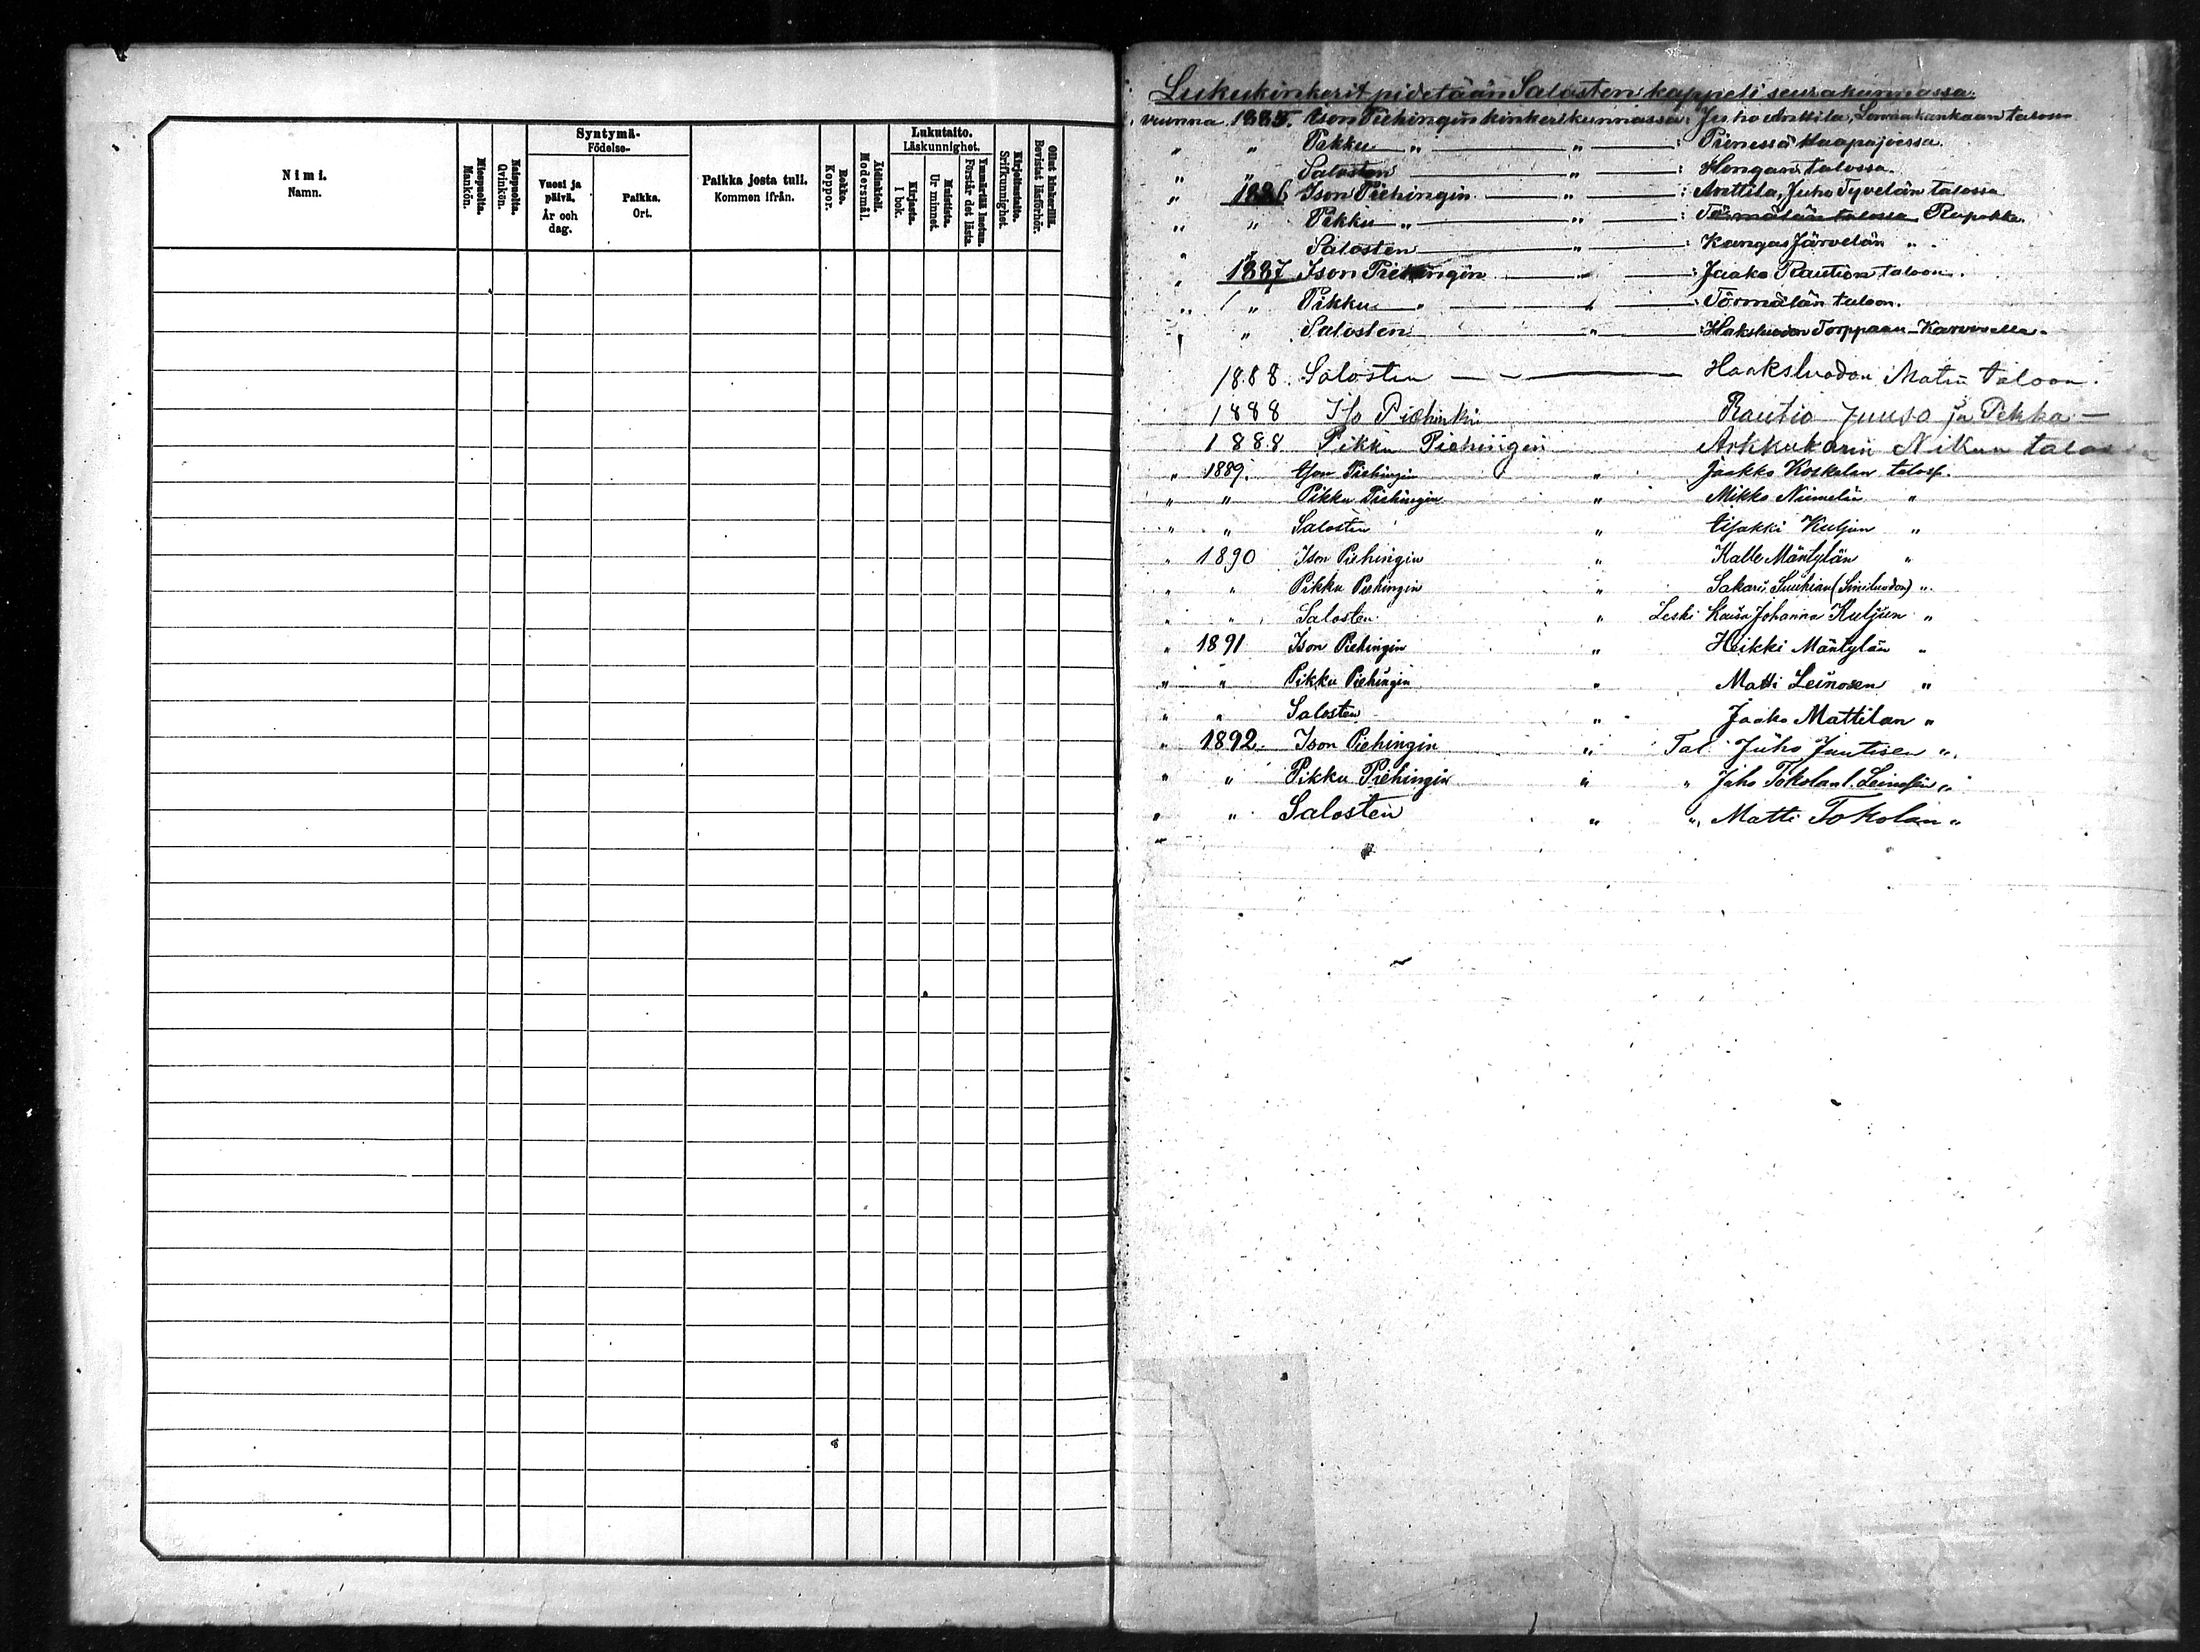 Nimi.
Namn.
Miespuolia.
Mankön.
Naispuolia.
Qvinkön.
Syntymä-
Födelse-
Vuosi ja
päivä.
År och
dag.
Paikka.
Ort.
Paikka josta tuli.
Kommen ifrån.
Rokko.
Koppor.
Äidinkieli.
Modersmål.
Lukutaito.
Läskunnighet.
Kirjasta.
I bok.
Muistista.
Ur minnet.
Ymmärtää luetun.
Förstår det lästa.
Kirjoitustaito.
Srifkunnighet.
Ollut kinkerillä.
Bevistat läsförhör.
Lukukinkerit pidetään Salosten kappeli seurakunnassa.
vuonna 1885. Ison Piehingin kinkerikunnassa: Juho Anttila, talossa
„ „ Pikku „ „ : Haapajoessa.
„ „ Salosten „ : Hongan talossa.
„ 1886 Ison Piehingin „ : Anttila, Juho Tyvelän talossa
„ „ Pikku „ „ : Törmälän talossa
„ „ Salosten „ : Kangas Järvelän „
„ 1887 Ison Piehingin „ : Jaako Raution taloon.
„ „ Pikku „ „ : Törmälän taloon.
„ „ Salosten „ : Torppaan
1888. Salosten Haaksluodon Matin taloon.
1888 Iso Piehinki Rautio Juuso ja Pekka
1888 Pikku Piehingin Arkkukarin talossa
„ 1889. Ison Piehingin „ Jaakko Koskelan talos.
„ „ Pikku Piehingin „ Mikko Niemelän „
„ „ Salosten „ Kuljun „
„ 1890 Ison Piehingin „ Kalle Mäntylän „
„ „ Pikku Piehingin „ Sakari (Siniluodon) „
„ „ Salosten „ Leski Kaisa Johanna Kuljun „
„ 1891 Ison Piehingin „ Heikki Mäntylän „
„ „ Pikku Piehingin „ Matti Leinosen „
„ „ Salosten „ Jaako Mattilan „
„ 1892. Ison Piehingin „ Tal. Juho Juutisen „
„ „ Pikku Piehingin „ „ Juho Tokolan l. Leinosen „
„ „ Salosten „ „ Matti Tokolan „